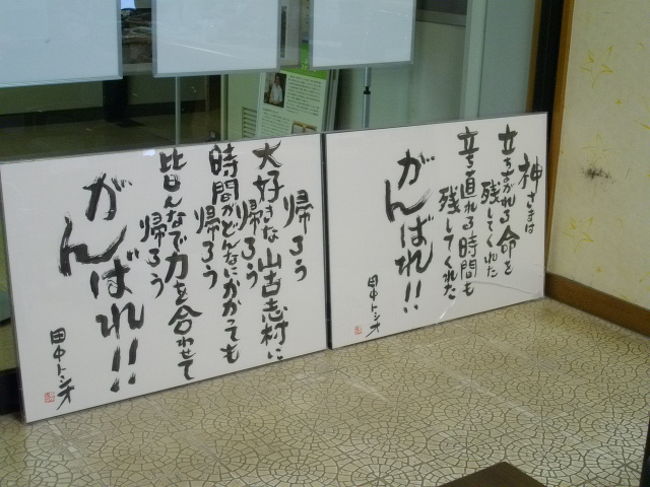 神さまは
立ちあがれる命を
残してくれた
立ち直れる時間も
残してくれた
がんばれ!!
田中トシオ
帰ろう
大好きな山古志村に
帰ろう
時間がどんなにかかっても
帰ろう
皆んなで力を合わせて
帰ろう
がんばれ!!
田中トシオ